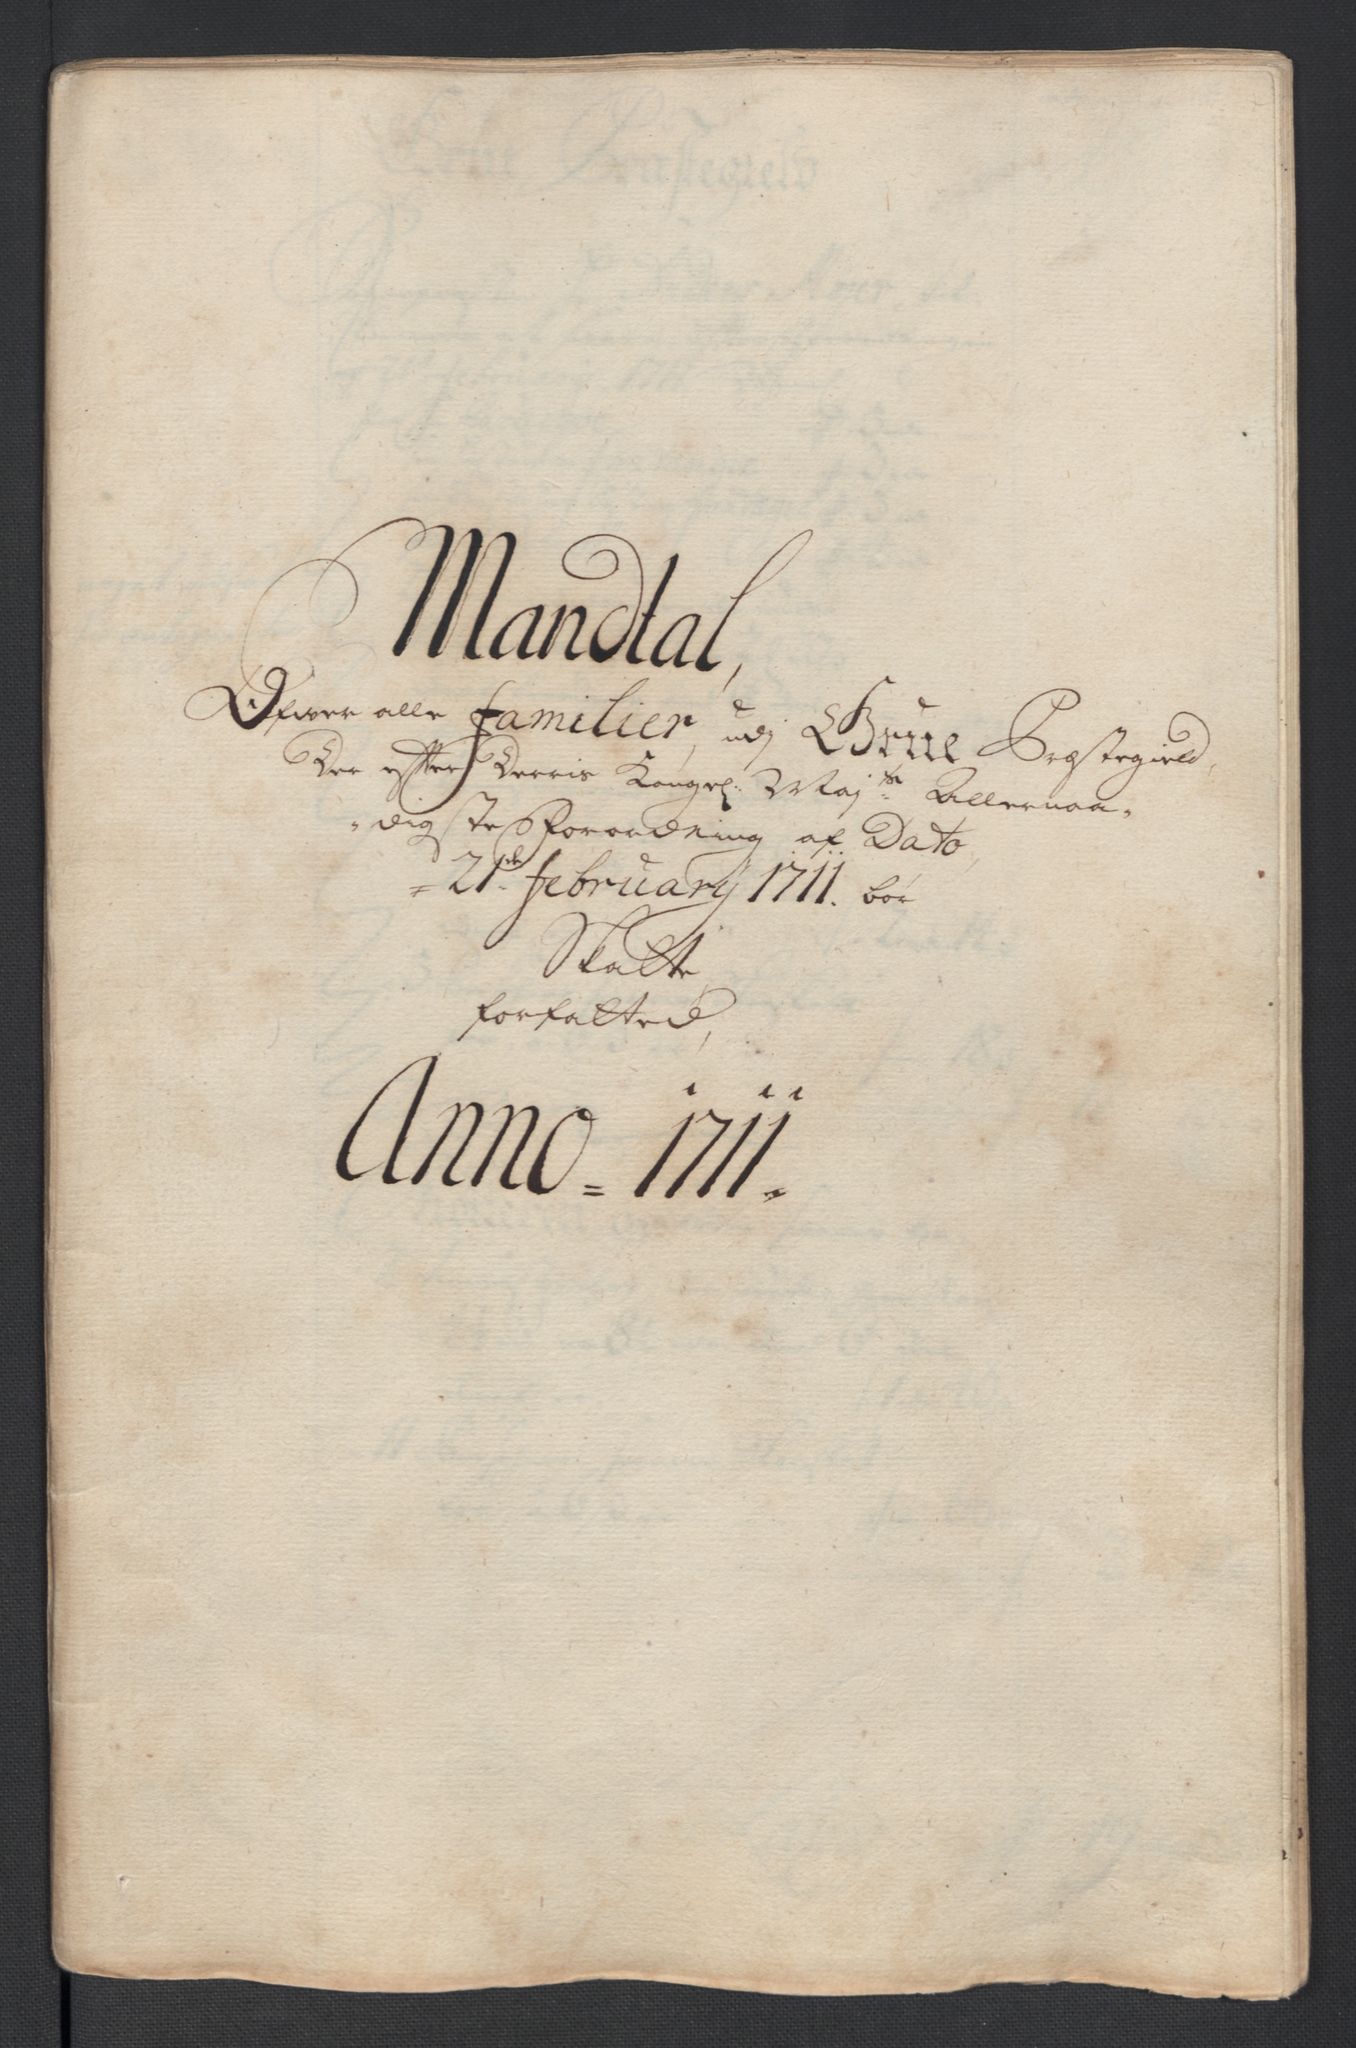 Mandtal,
Ofwer alle familier, udj Grue Præstegield,
Der efter Derris Kongel: Maj:ts Allernaa-
-digste Forordning af Dato,
=21de february 1711. bør
Skatte,
forfatted,
Anno = 1711.